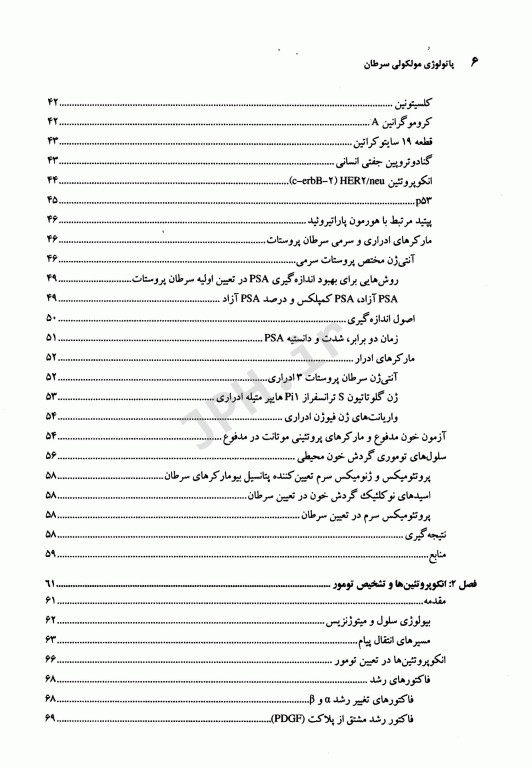 ۶ پاتولوژی مولکولی سرطان
کلسیتونین ۴۲
کروموگرانین A ۴۲
قطعه ۱۹ سایتوکراتین ۴۳
گنادوتروپین جفتی انسانی ۴۳
انکوپروتئین HER۲/neu (c-erbB-۲) ۴۴
p۵۳ ۴۵
پپتید مرتبط با هورمون پاراتیروئید ۴۶
مارکرهای ادراری و سرمی سرطان پروستات ۴۶
آنتی‌ژن مختص پروستات سرمی ۴۶
روش‌هایی برای بهبود اندازه‌گیری PSA در تعیین اولیه سرطان پروستات ۴۹
PSA آزاد، PSA کمپلکس و درصد PSA آزاد ۴۹
اصول اندازه‌گیری ۵۰
زمان دو برابر، شدت و دانسیته PSA ۵۱
مارکرهای ادرار ۵۲
آنتی‌ژن سرطان پروستات ۳ ادراری ۵۲
ژن گلوتاتیون S ترانسفراز Pi۱ هایپر متیله ادراری ۵۳
واریانت‌های ژن فیوژن ادراری ۵۴
آزمون خون مدفوع و مارکرهای پروتئینی موتانت در مدفوع ۵۴
سلول‌های توموری گردش خون محیطی ۵۶
پروتئومیکس و ژنومیکس سرم تعیین‌کننده پتانسیل بیومارکرهای سرطان ۵۸
اسیدهای نوکلئیک گردش خون در تعیین سرطان ۵۸
پروتئومیکس سرم در تعیین سرطان ۵۸
نتیجه‌گیری ۵۸
منابع ۵۹
فصل ۲: انکوپروتئین‌ها و تشخیص تومور ۶۱
مقدمه ۶۱
بیولوژی سلول و میتوژنزیس ۶۲
مسیرهای انتقال پیام ۶۳
انکوپروتئین‌ها در تعیین تومور ۶۶
فاکتورهای رشد ۶۸
فاکتورهای تغییر رشد α و β ۶۸
فاکتور رشد مشتق از پلاکت (PDGF) ۶۹
JPH.ir